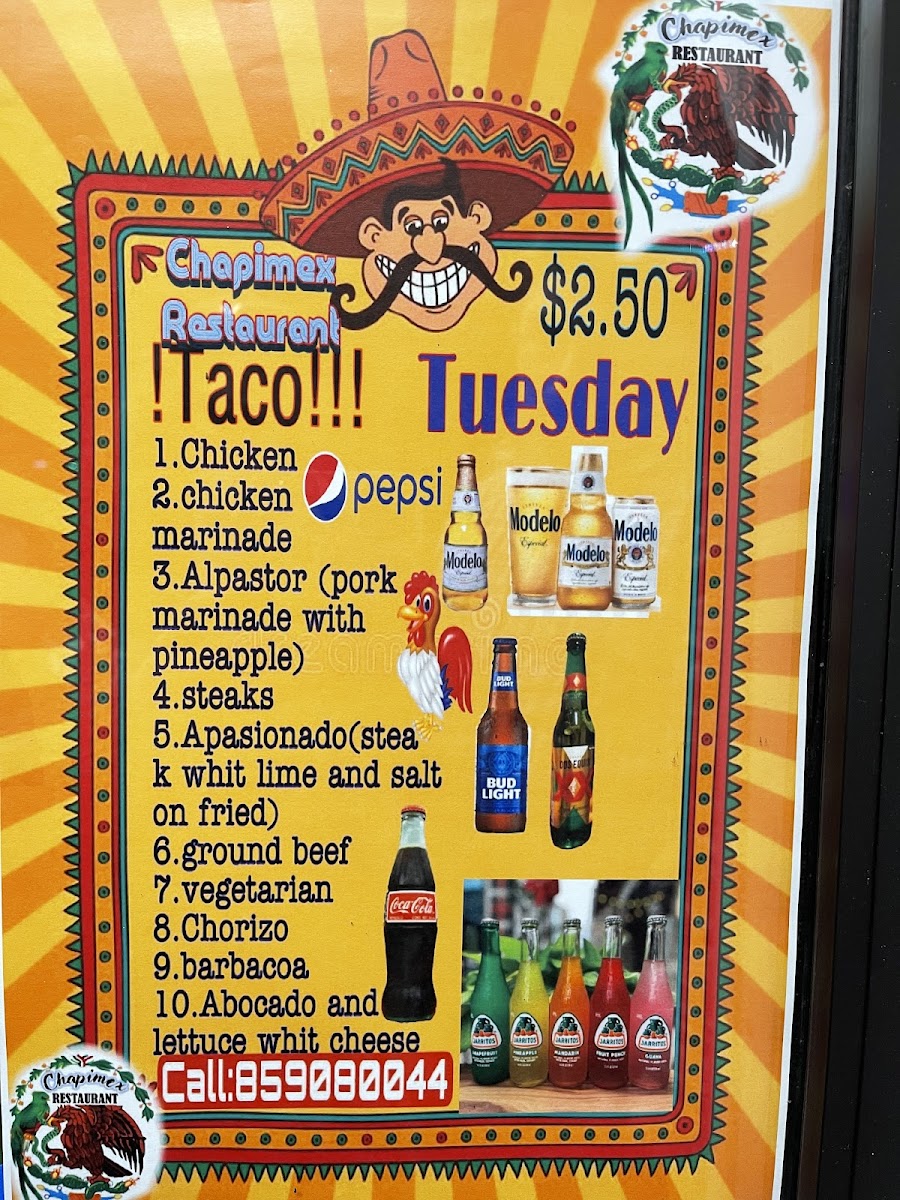 Chapimex
RESTAURANT
Chapimex
Restaurant
$2.50
!Taco!!!
Tuesday
1.Chicken
2.chicken
marinade
3.Alpastor (pork
marinade with
pineapple)
4.steaks
5.Apasionado(stea
k whit lime and salt
on fried)
6.ground beef
7.vegetarian
8.Chorizo
9.barbacoa
10.Abocado and
lettuce whit cheese
Call:859080044
pepsi
Modelo
Modelo
Especial
Modelo
Modelo
Especial
BUD
LIGHT
BUD
LIGHT
DOS EQUIS
Coca-Cola
JARRITOS
GRAPEFRUIT
JARRITOS
PINEAPPLE
JARRITOS
MANDARIN
JARRITOS
FRUIT PUNCH
JARRITOS
GUAVA
Chapimex
RESTAURANT